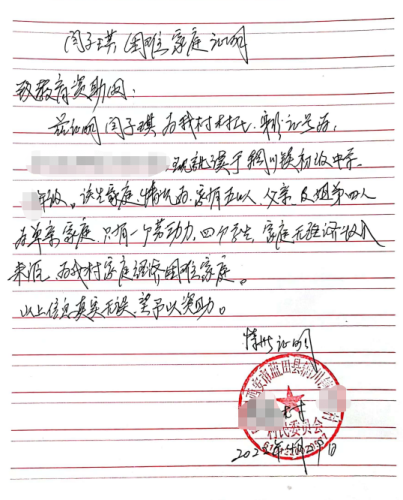 闫子琪 困难家庭证明
致教育资助网:
兹证明闫子琪为我村村民,身份证号为:
现就读于辋川镇初级中学
年级。该生家庭情况为:家有五口人,父亲及姐弟四人
为单亲家庭,只有一个劳动力,四个学生,家庭无经济收入
来源,为我村家庭经济困难家庭。
以上信息真实无误,望予以资助。
情况证明
西安市蓝田县辋川镇 村
村民委员会